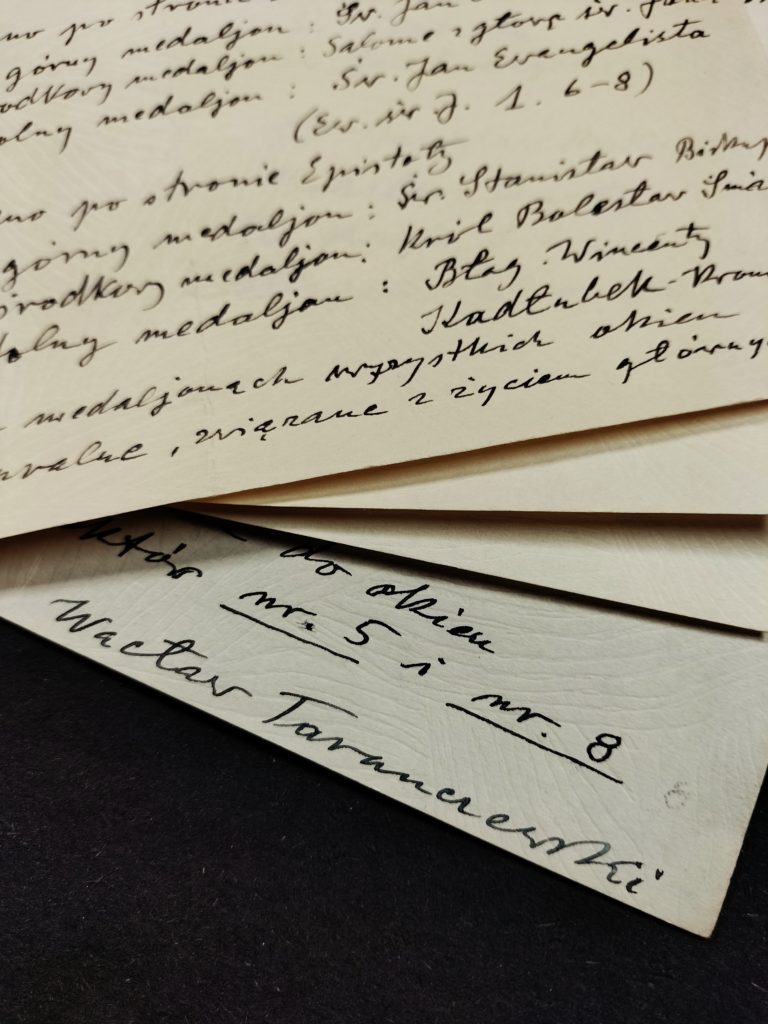 no po stronie
górny medaljon : Św. Jan
środkowy medaljon : Salome z głową św. Jana
dolny medaljon : Św. Jan Evangelista
(Ew. św J. 1. 6–8)
no po stronie Epistoły
górny medaljon : Św. Stanisław Biskup
środkowy medaljon : Król Bolesław Śmia
dolny medaljon : Błog. Wincenty
Kadłubek-Kron
medaljonach wszystkich okien
uralne, związane z życiem główny
do okien
któr nr. 5 i nr. 8
Wacław Taranczewski